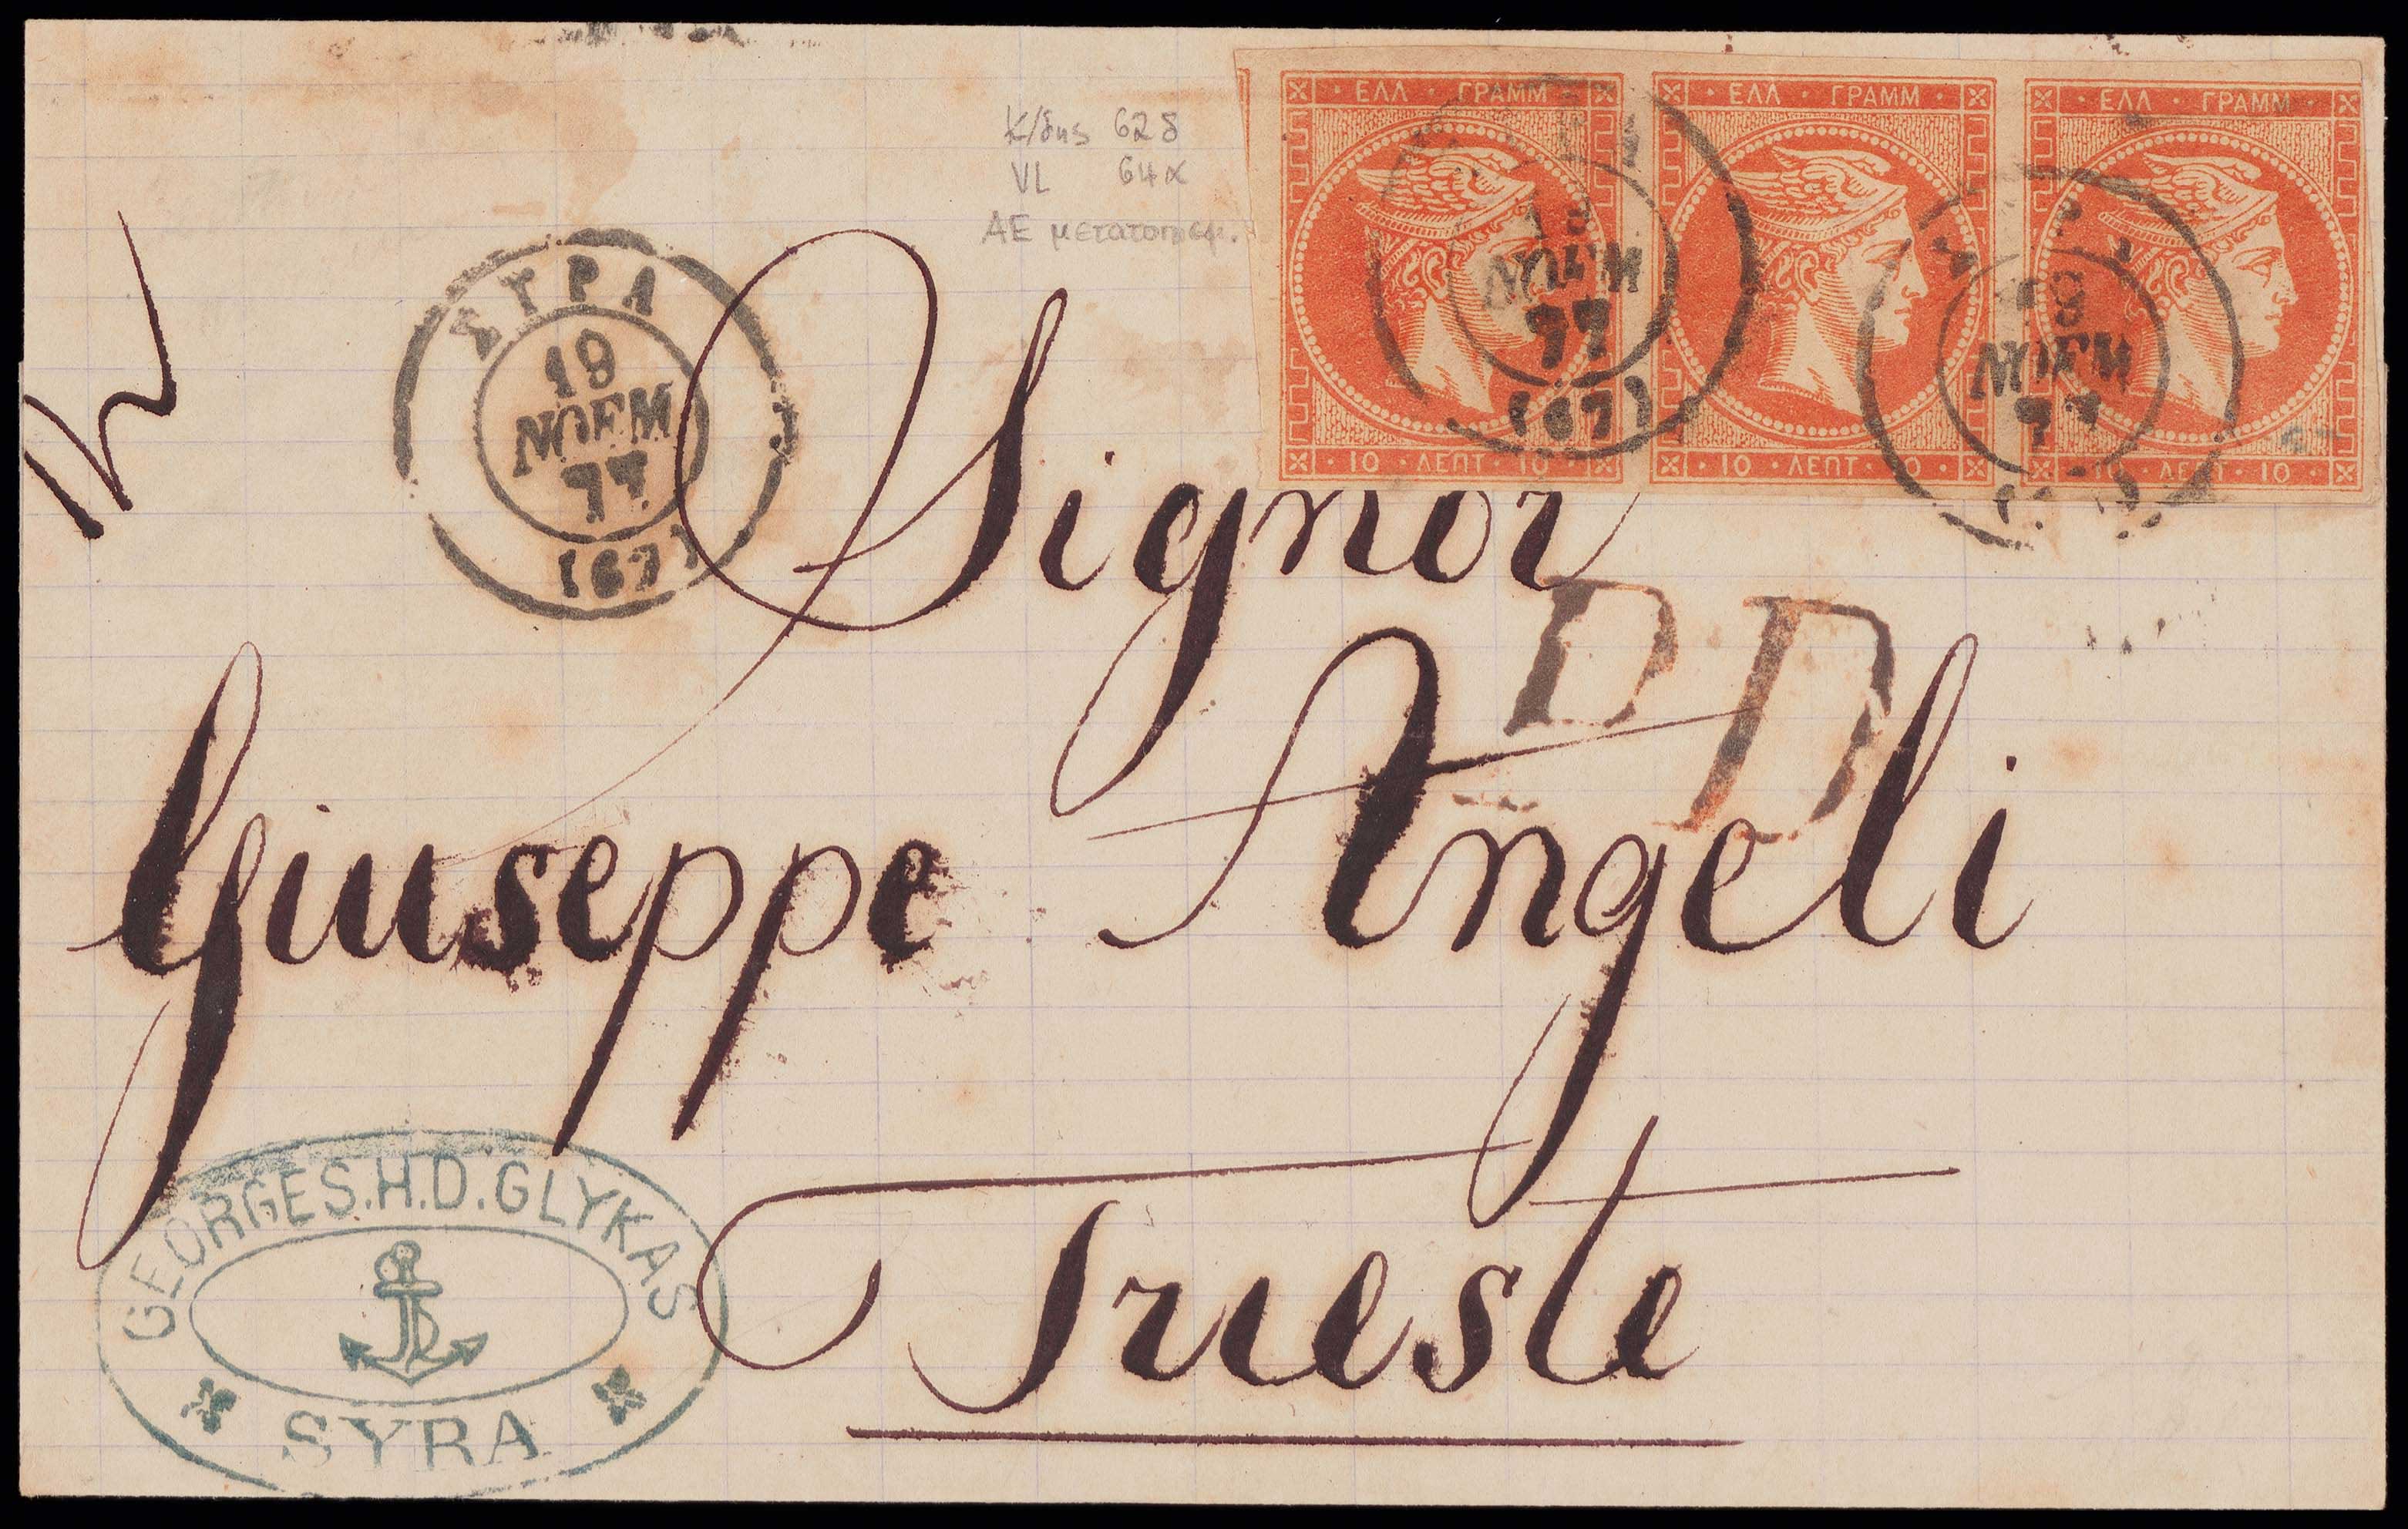 ΕΛΛ · ΓΡΑΜΜ · ΕΛΛ · ΓΡΑΜΜ · ΕΛΛ · ΓΡΑΜΜ
Κ/δης 62δ
VL 64α
ΑΕ
ΣΥΡΑ
19
ΝΟΕΜ
77
(67)
18
ΝΟΕΜ
77
(67)
18
ΝΟΕΜ
77
10 · ΛΕΠΤ · 10 10 · ΛΕΠΤ · 10 10 · ΛΕΠΤ · 10
Signor
Giuseppe Angeli
Trieste
GEORGES.H.D.GLYKAS
SYRA